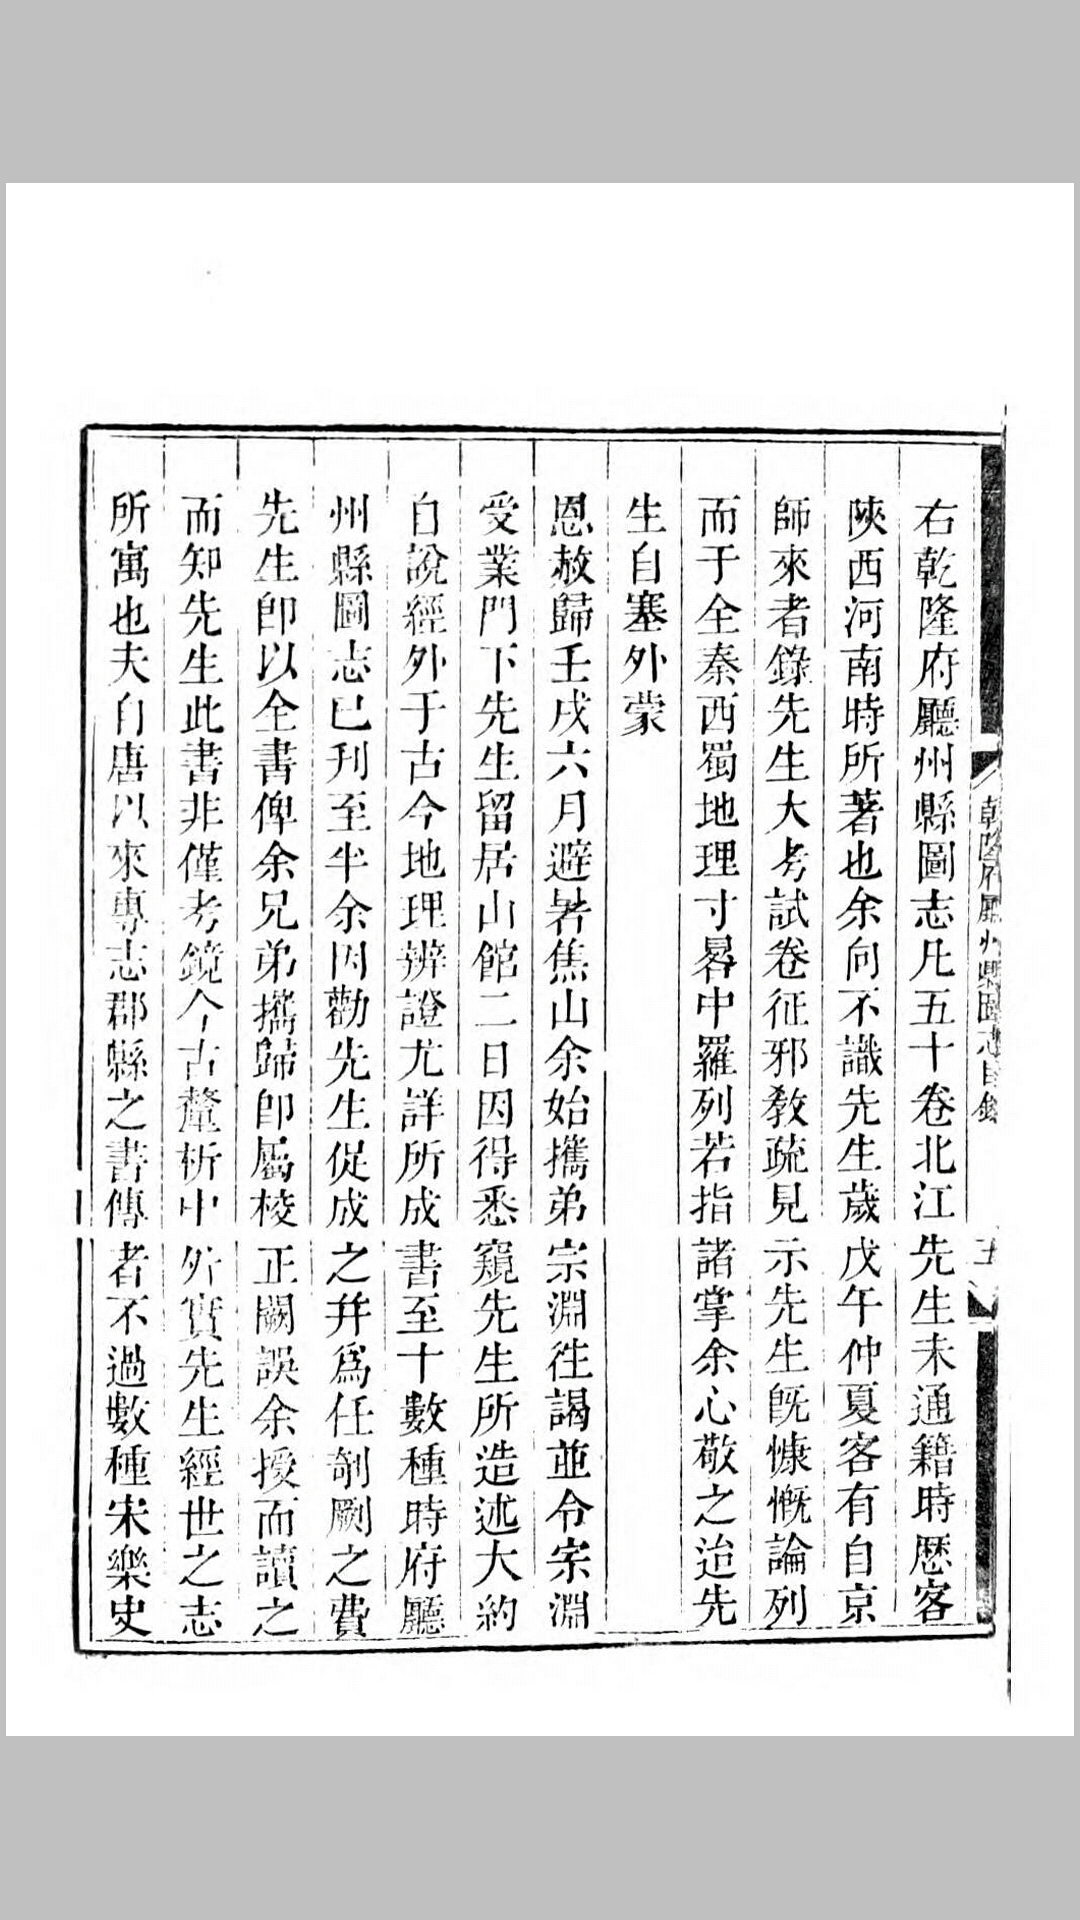 乾隆府廳州縣圖志目錄
五
右乾隆府廳州縣圖志凡五十卷北江先生未通籍時歷客
陝西河南時所著也余向不識先生歲戊午仲夏客有自京
師來者錄先生大考試卷征邪敎疏見示先生旣慷慨論列
而于全秦西蜀地理寸晷中羅列若指諸掌余心敬之迨先
生自塞外蒙
恩赦歸壬戌六月避暑焦山余始攜弟宗淵往謁並令宗淵
受業門下先生留居山館二日因得悉窺先生所造述大約
自說經外于古今地理辨證尤詳所成書至十數種時府廳
州縣圖志已刊至半余因勸先生促成之幷爲任剞劂之費
先生卽以全書俾余兄弟攜歸卽屬校正闕誤余授而讀之
而知先生此書非僅考鏡今古釐析中外實先生經世之志
所寓也夫自唐以來專志郡縣之書傳者不過數種宋樂史